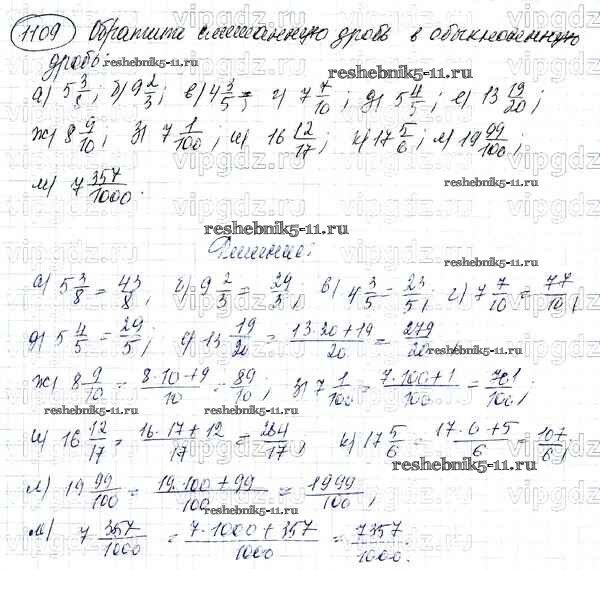 1109 Обратите смешанную дробь в обыкновенную
дробь:
а) 5 3/8; б) 9 2/3; в) 4 3/5; г) 7 7/10; д) 5 4/5; е) 13 19/20;
ж) 8 9/10; з) 7 1/100; и) 16 12/17; к) 17 5/6; л) 19 99/100;
м) 7 357/1000.
Решение:
а) 5 3/8 = 43/8; б) 9 2/3 = 29/3; в) 4 3/5 = 23/5; г) 7 7/10 = 77/10;
д) 5 4/5 = 29/5; е) 13 19/20 = 13·20+19/20 = 279/20;
ж) 8 9/10 = 8·10+9/10 = 89/10; з) 7 1/100 = 7·100+1/100 = 701/100;
и) 16 12/17 = 16·17+12/17 = 284/17; к) 17 5/6 = 17·6+5/6 = 107/6;
л) 19 99/100 = 19·100+99/100 = 1999/100;
м) 7 357/1000 = 7·1000+357/1000 = 7357/1000.
reshebnik5-11.ru
vipgdz.ru